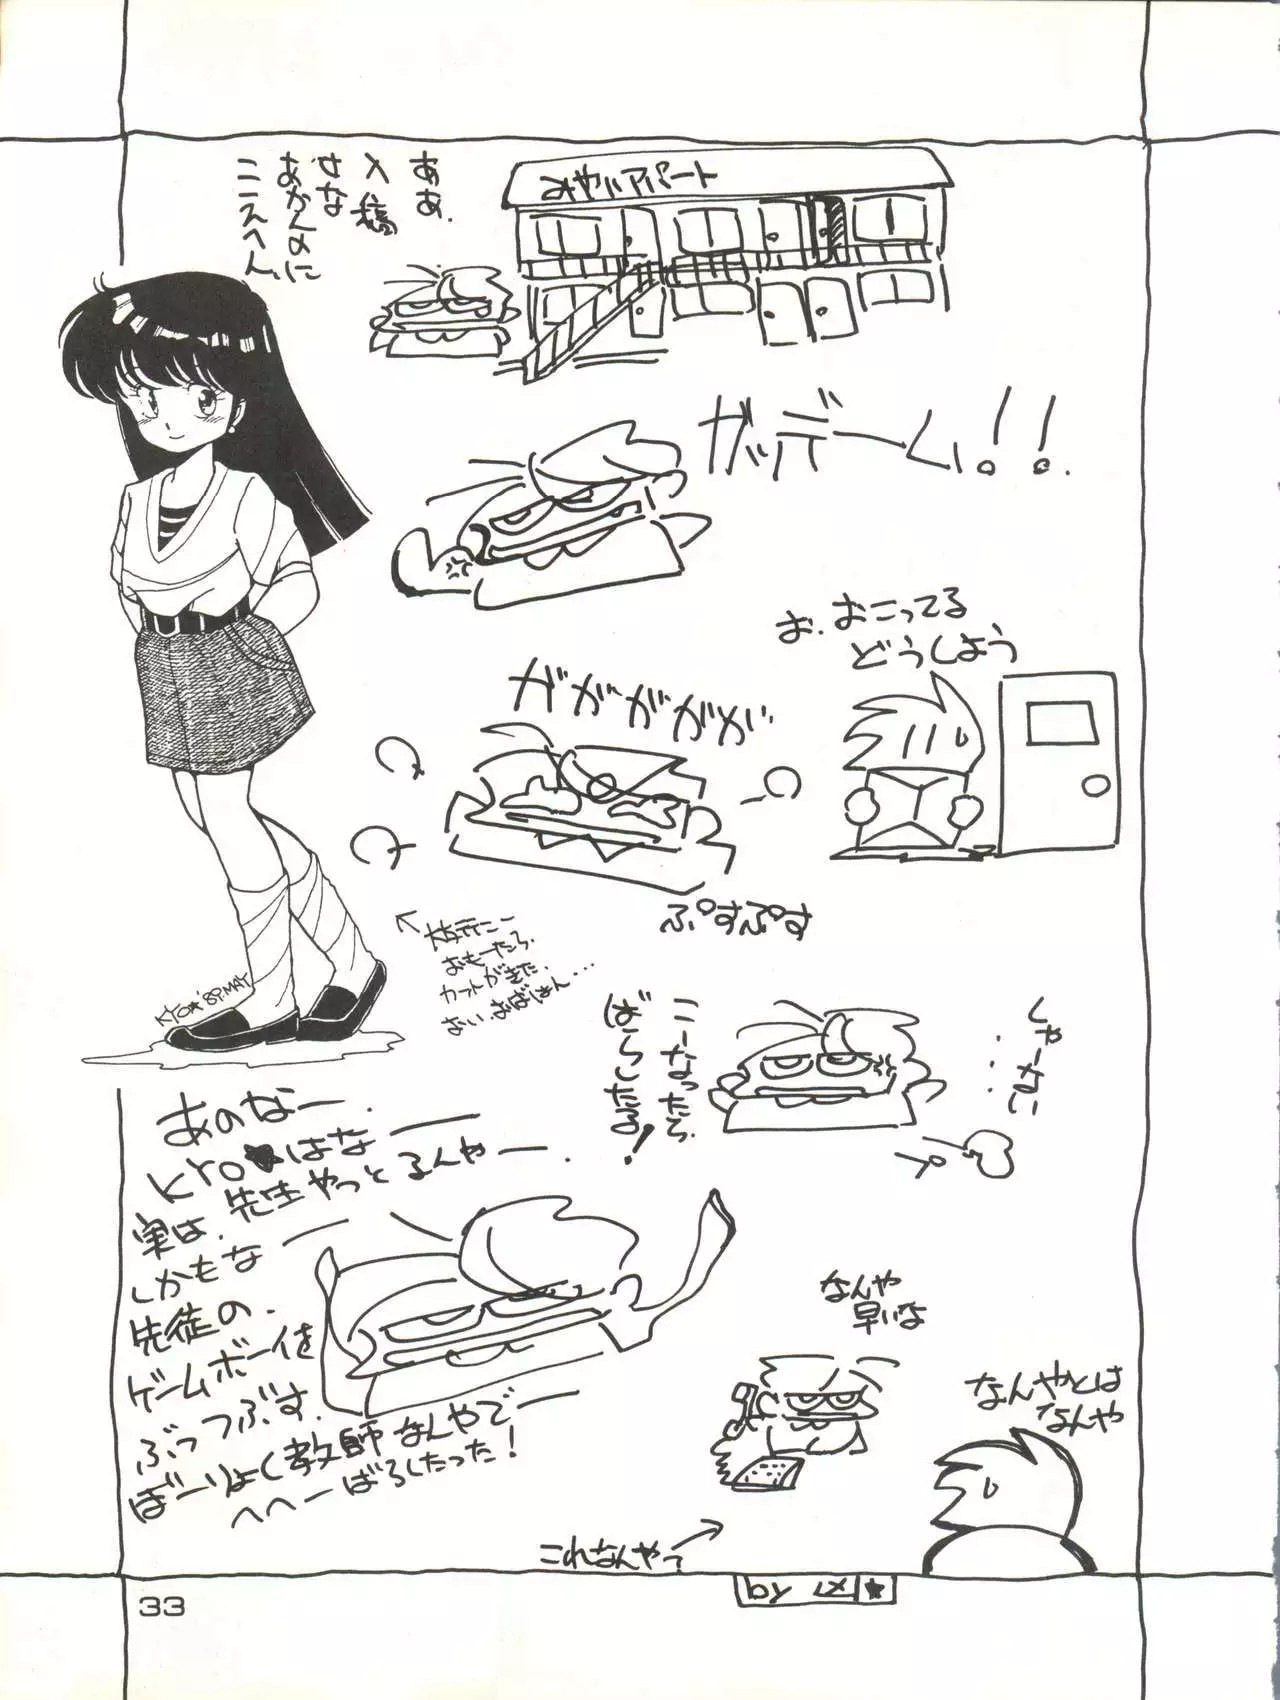 みやいアパート
ああ、
入稿
せな
あかんのに
ここえへん、
ガッデーム!!
お、おこってる
どうしよう
ガガガガガ
ぷすぷす
おもーたら、
カットがきた、
おい、おばはん…
KYO★'89.MAY
しゃーない
・・・
こーなったら、
ばらしたる!
あのなー、
KYO★はなー
実は、先生やっとるんやー、
しかもなー
先徒の、
ゲームボーイを
ぶっつぶす、
ぼーりょく教師なんやでー
へへーばらしたった!
なんや
早いな
なんやとは
なんや
これなんや?
33
by